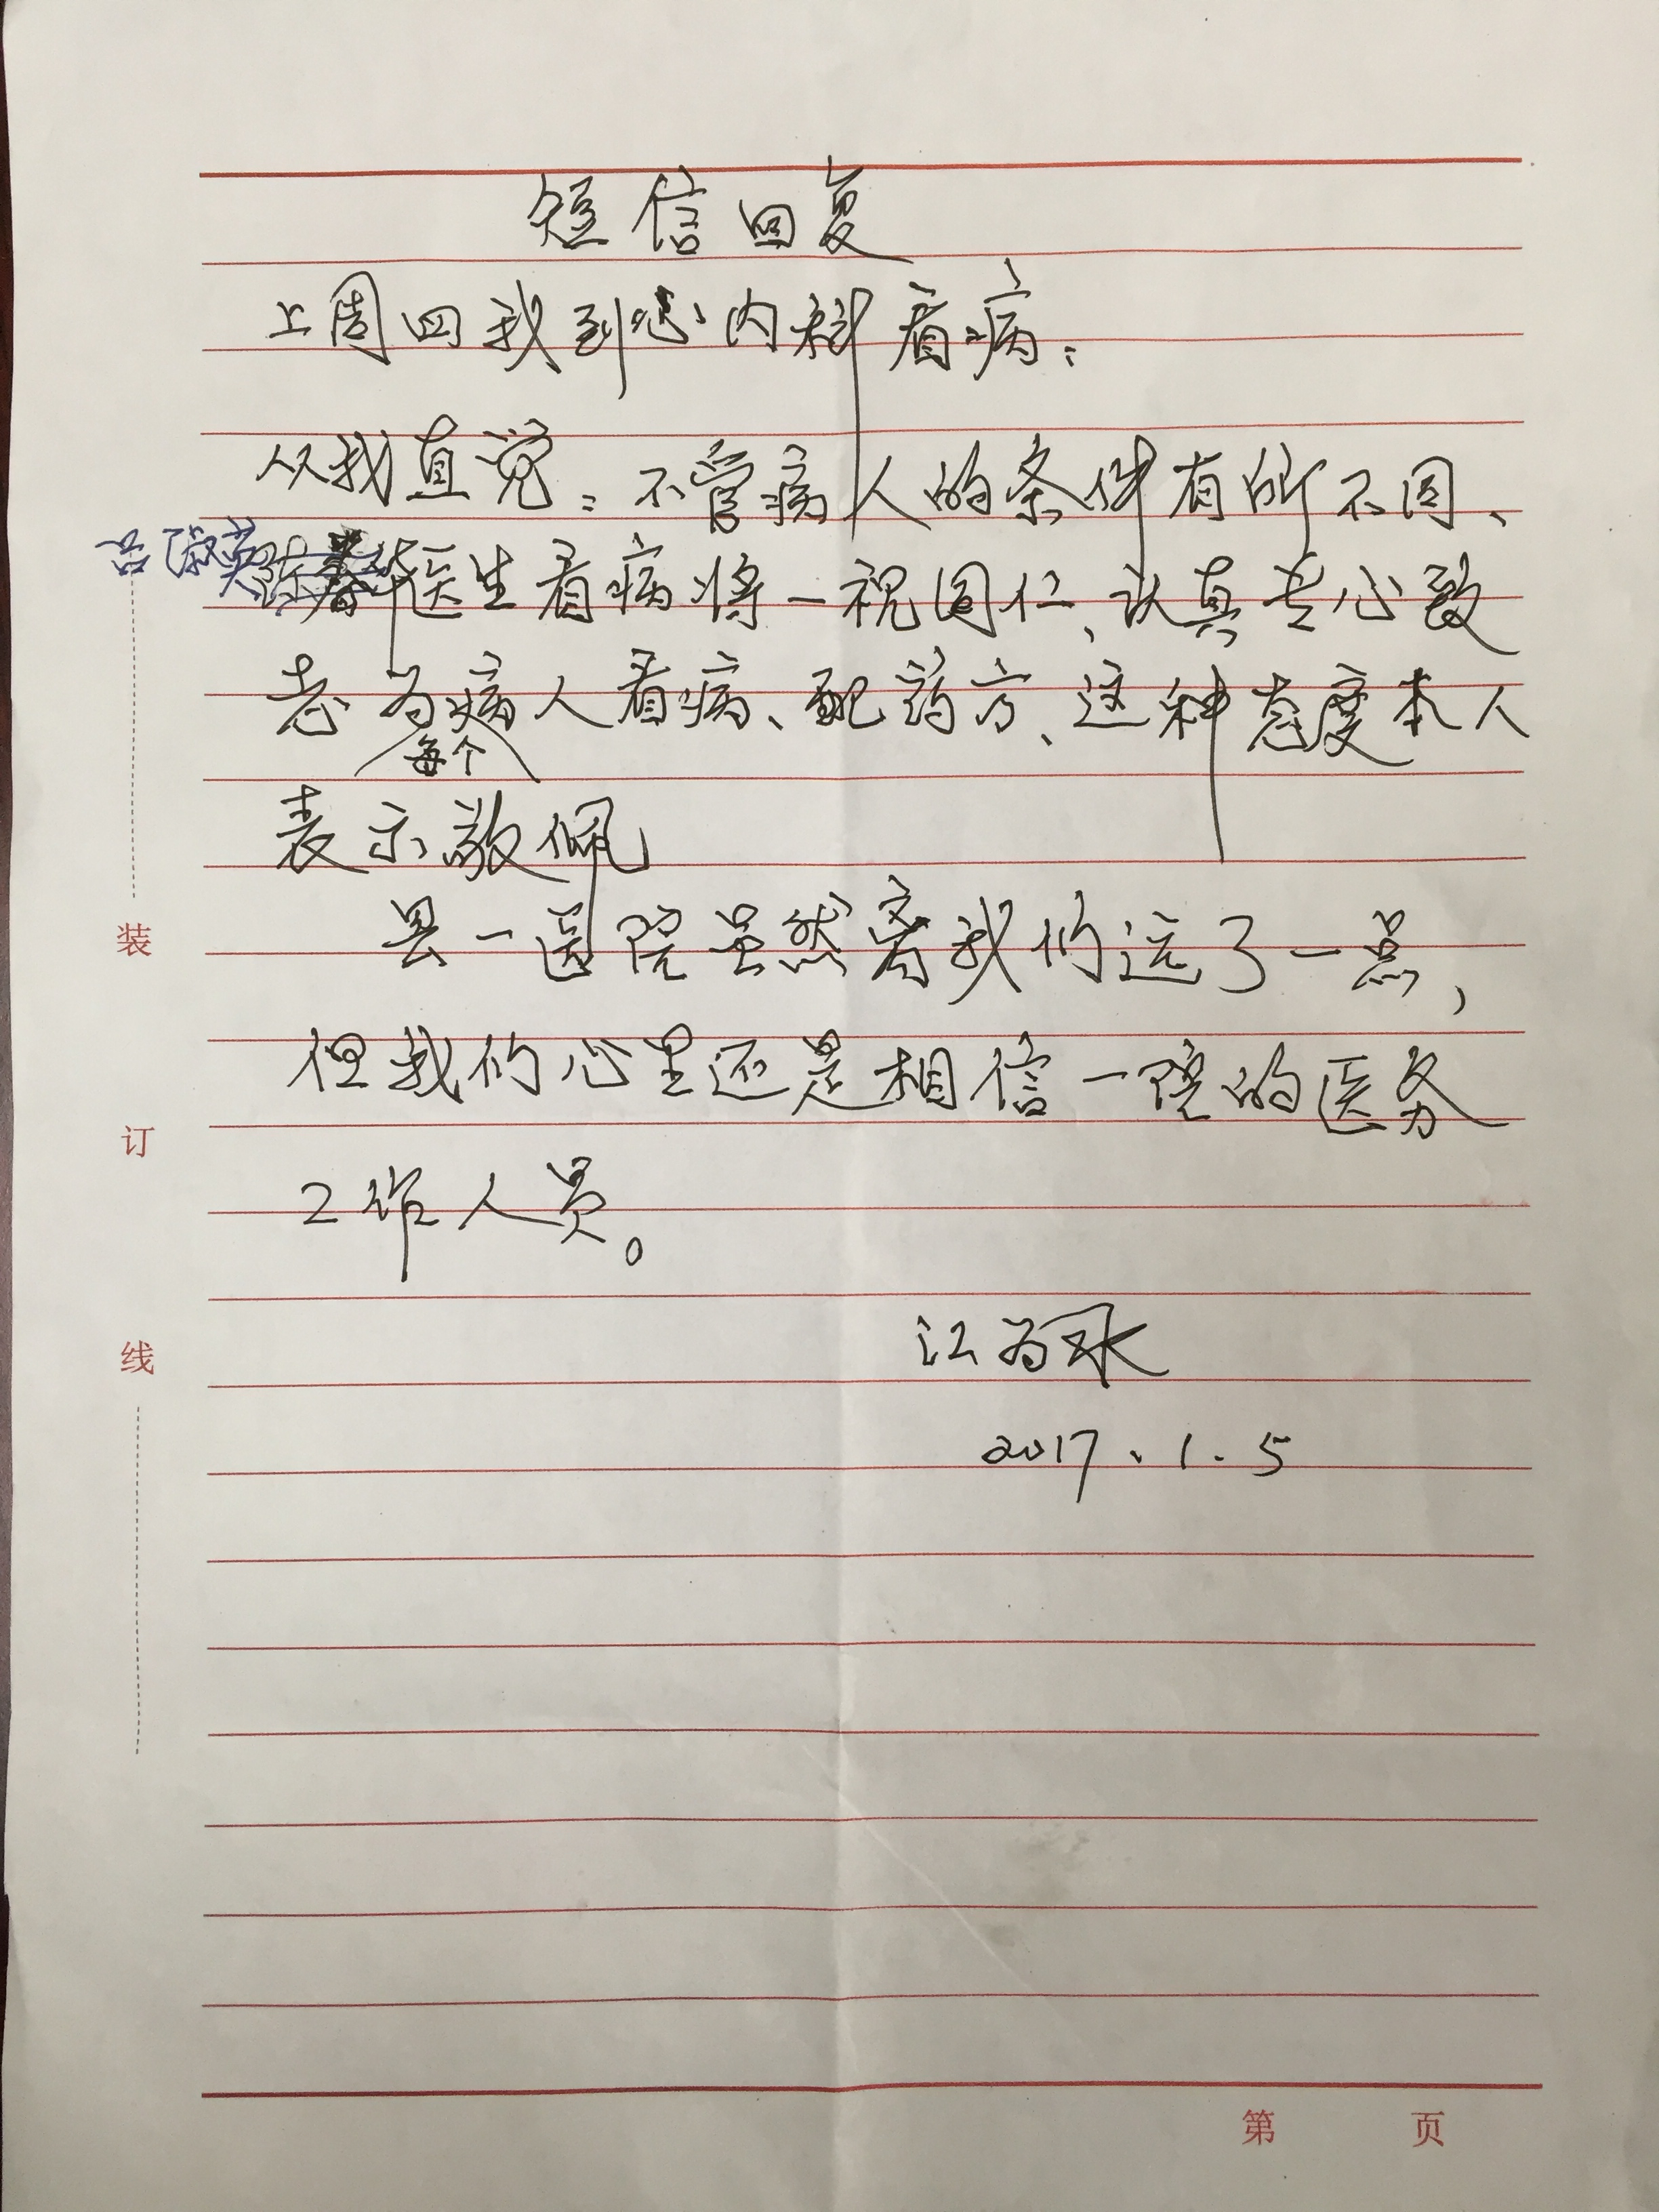 短信回复
上周四我到心内科看病:
从我直觉:不管病人的条件有所不同、
吕淑英医生看病将一视同仁、认真专心致
志为每个病人看病、配药方、这种态度本人
表示敬佩
县一医院虽然离我们远了一点,
但我们心里还是相信一院的医务
工作人员。
江为永
2017.1.5
装
订
线
第 页